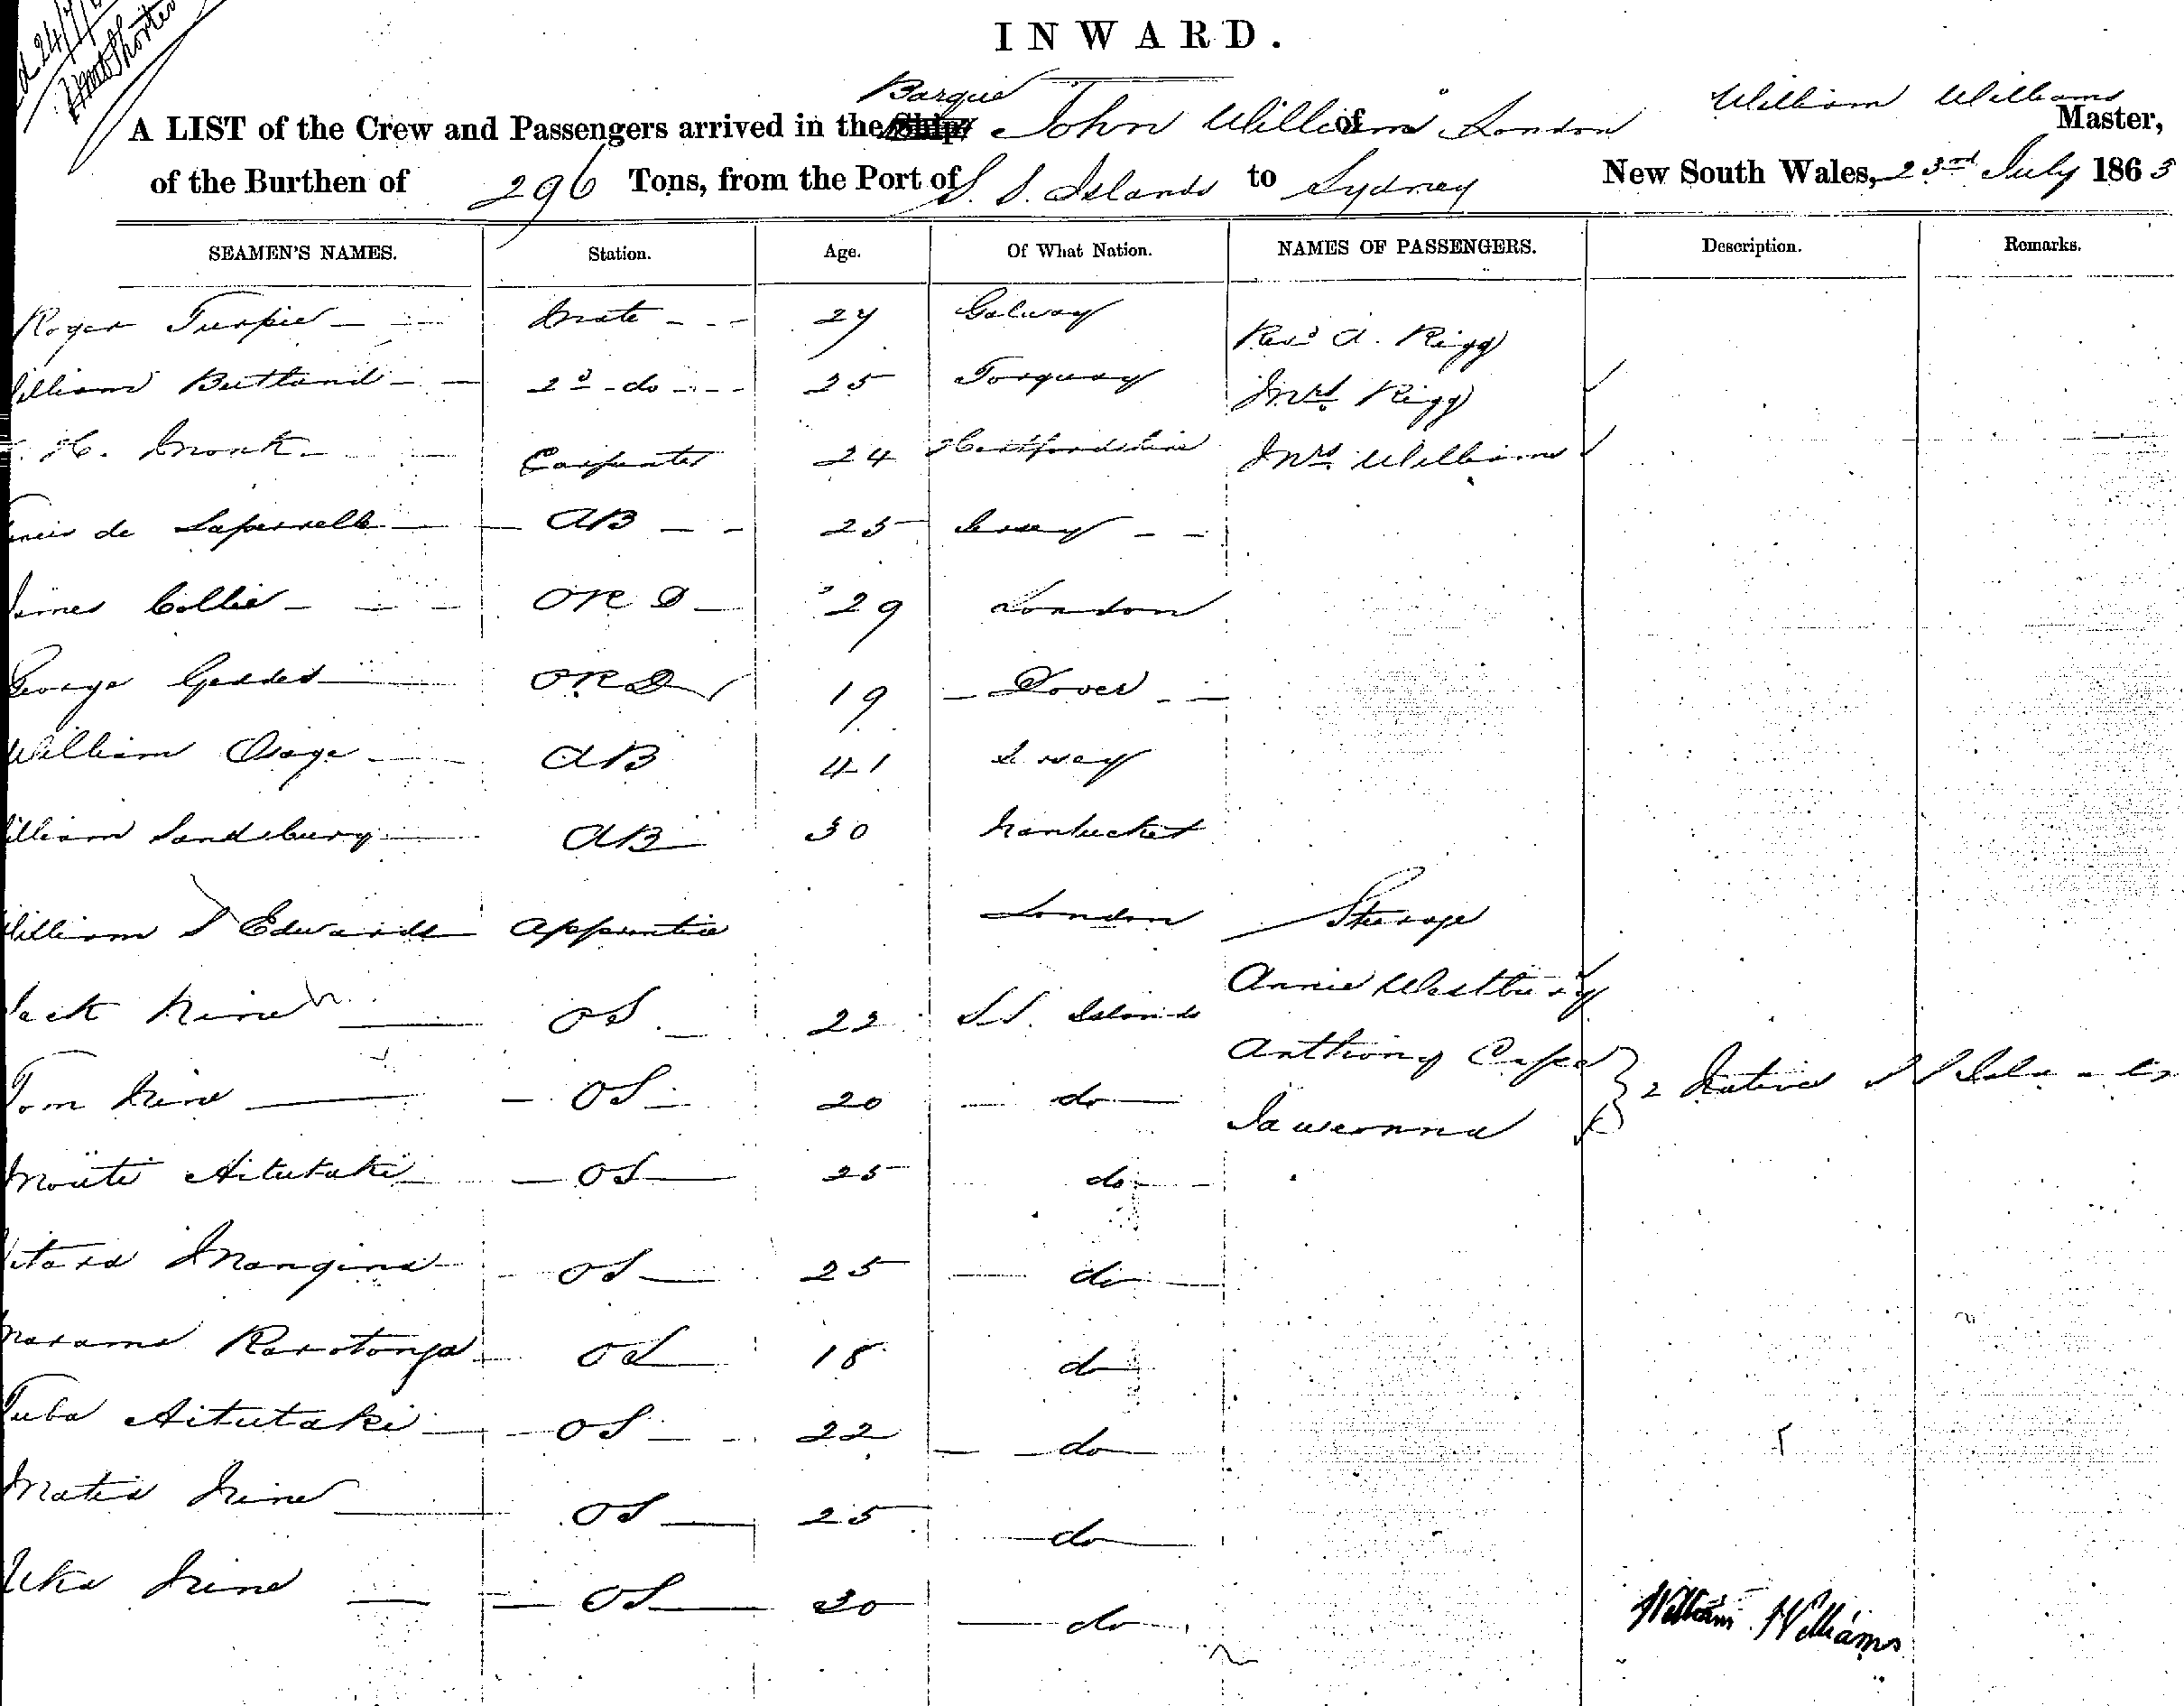 INWARD.
Barque William Williams
A LIST of the Crew and Passengers arrived in the Ship John Williams of London Master,
of the Burthen of 296 Tons, from the Port of S. S. Islands to Sydney New South Wales, 23rd July 1863
SEAMEN'S NAMES. Station. Age. Of What Nation. NAMES OF PASSENGERS. Description. Remarks.
Roger Turpie Mate 27 Galway Revd A. Rigg
William Butland 2d do 25 Torquay Mrs Rigg
H. Monk Carpenter 24 Hertfordshire Mrs Williams
de AB 25 Jersey
James Collie ORD 29 London
George Geddes ORD 19 Dover
William AB 41 Jersey
William Sandsbury AB 30 Nantucket
William S Edwards Apprentice London Steerage
Jack Niue OS 22 S.S. Islands Annie Westbury
Tom Niue OS 20 do Anthony
2 Natives S S Islands
Aitutaki OS 25 do
Mangina OS 25 do
Marama Rarotonga OS 18 do
Tuba Aitutaki OS 22 do
Niue OS 25 do
Niue OS 30 do
William Williams